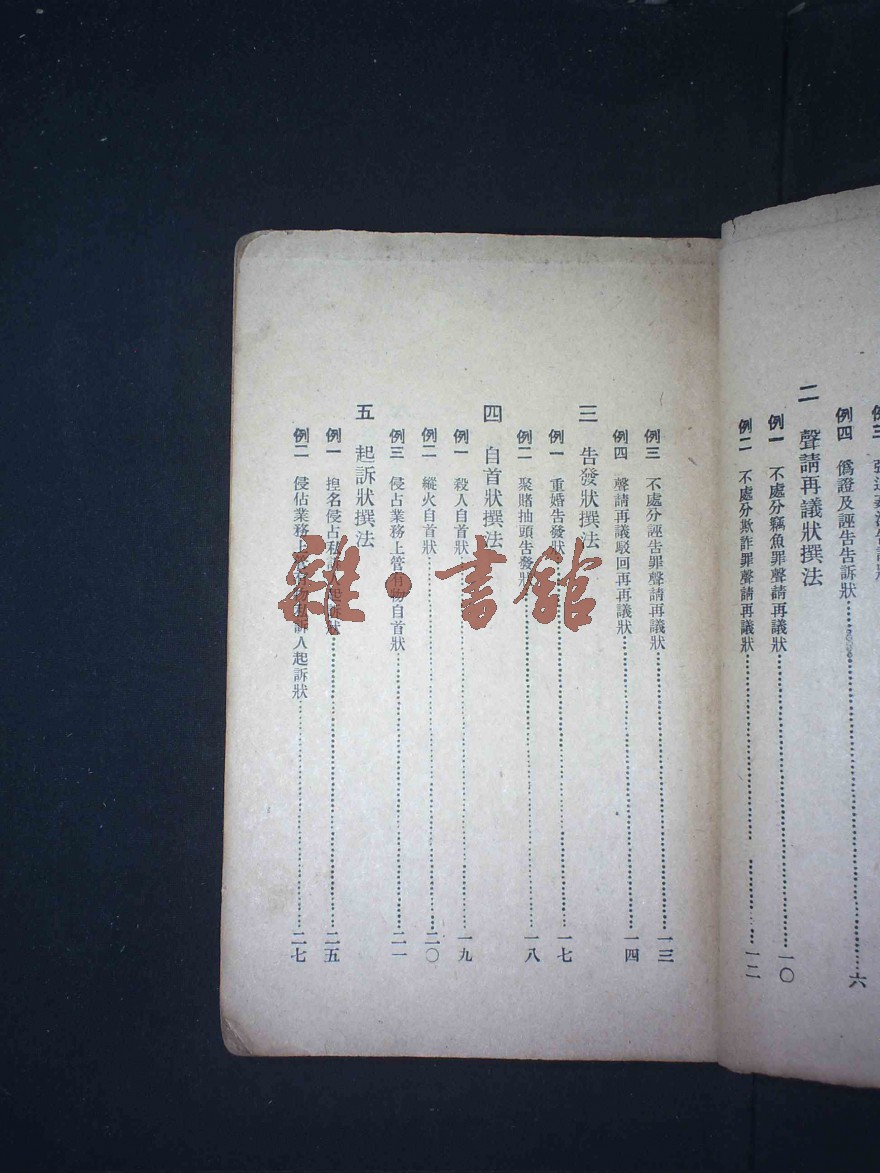 例四　僞證及誣告告訴狀……六
二　聲請再議狀撰法
例一　不處分竊魚罪聲請再議狀……一〇
例二　不處分欺詐罪聲請再議狀……一二
例三　不處分誣告罪聲請再議狀……一三
例四　聲請再議駁回再再議狀……一四
三　告發狀撰法
例一　重婚告發狀……一七
例二　聚賭抽頭告發狀……一八
四　自首狀撰法
例一　殺人自首狀……一九
例二　縱火自首狀……二〇
例三　侵占業務上管有物自首狀……二一
五　起訴狀撰法
例一　揑名侵占私訴人起訴狀……二五
例二　侵佔業務上管有物私訴人起訴狀……二七
雜·書館